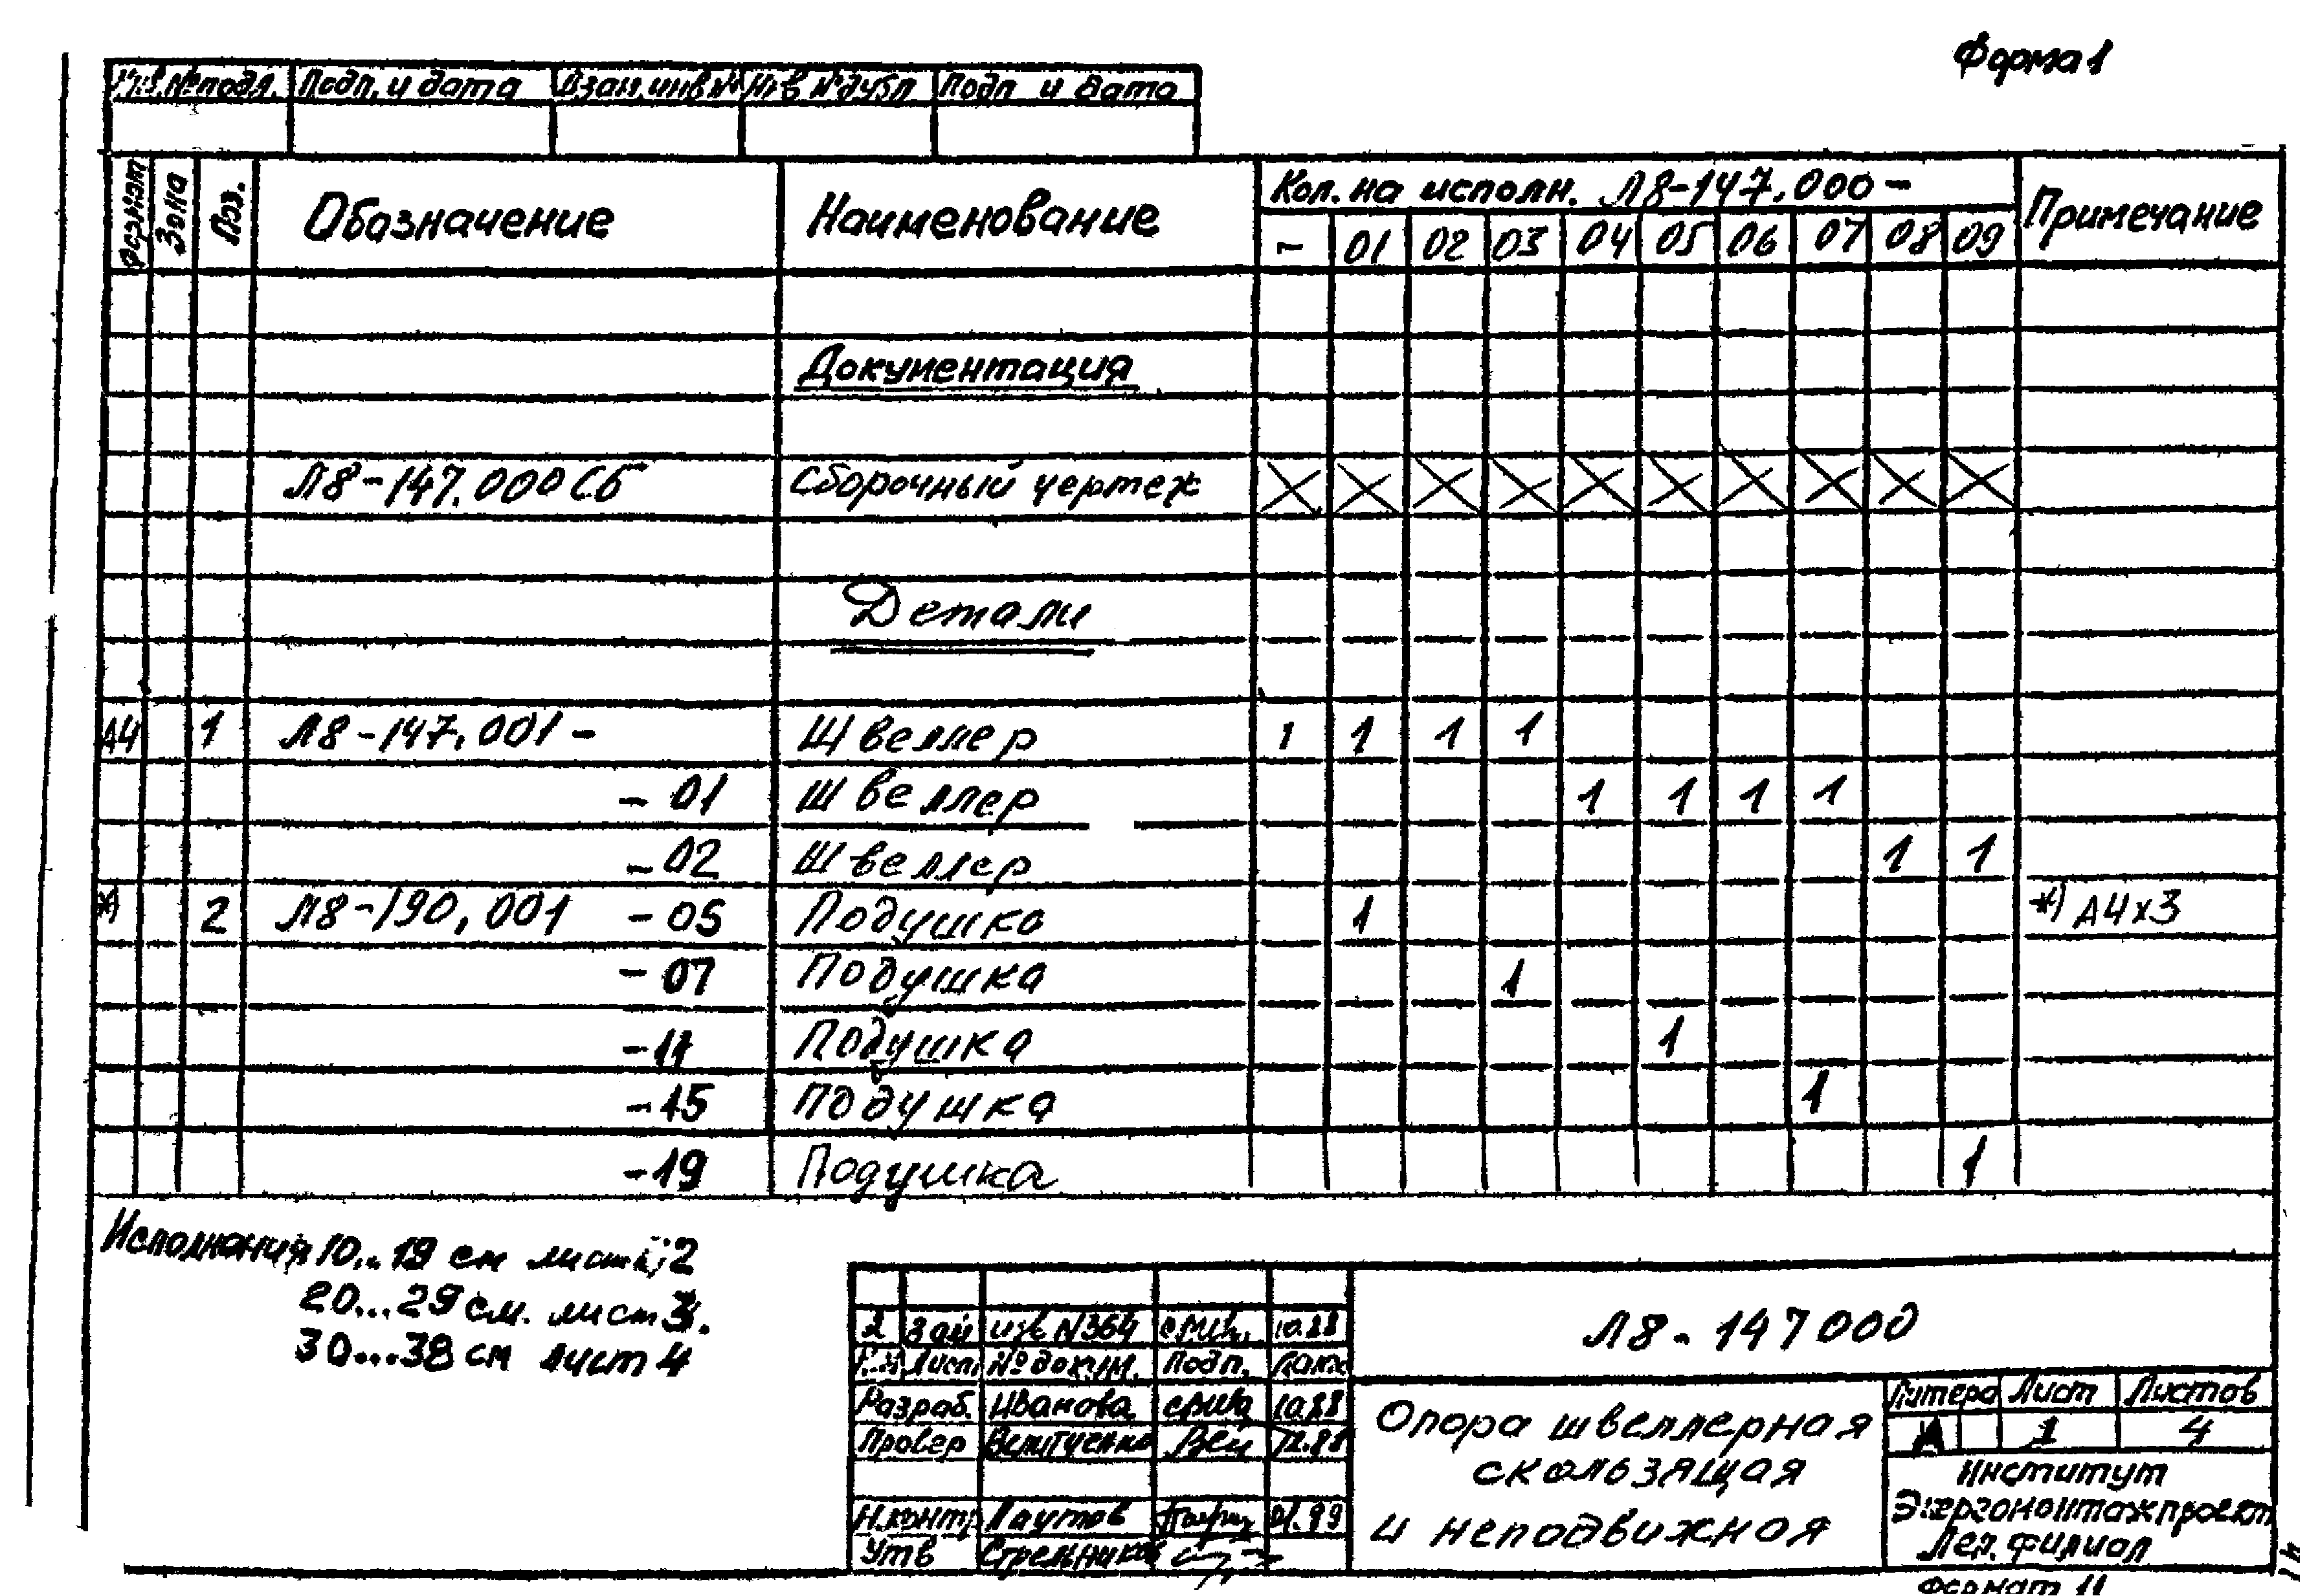 Форма 1
Инв.№ подл. Подп. и дата Взам. инв № Инв № дубл Подп и дата
Формат Зона Поз. Обозначение Наименование Кол. на исполн. Л8-147.000- Примечание
- 01 02 03 04 05 06 07 08 09
Документация
Л8-147.000 СБ Сборочный чертеж
Детали
А4 1 Л8-147.001- Швеллер 1 1 1 1
-01 Швеллер 1 1 1 1
-02 Швеллер 1 1
*) 2 Л8-190.001 -05 Подушка 1 *) А4х3
-07 Подушка 1
-11 Подушка 1
-15 Подушка 1
-19 Подушка 1
Исполнения 10...19 см лист 2
20...29 см. лист 3.
30...38 см лист 4
2 Зам изв N364 10.88
Лист № докум. Подп. Дата
Разраб. Иванова 10.88
Провер
Н.контр
Утв Стрельников
Л8-147000
Опора швеллерная
скользящая
и неподвижная
Литера Лист Листов
А 1 4
Институт
Энергомонтажпроект
Лен. филиал
Формат 11